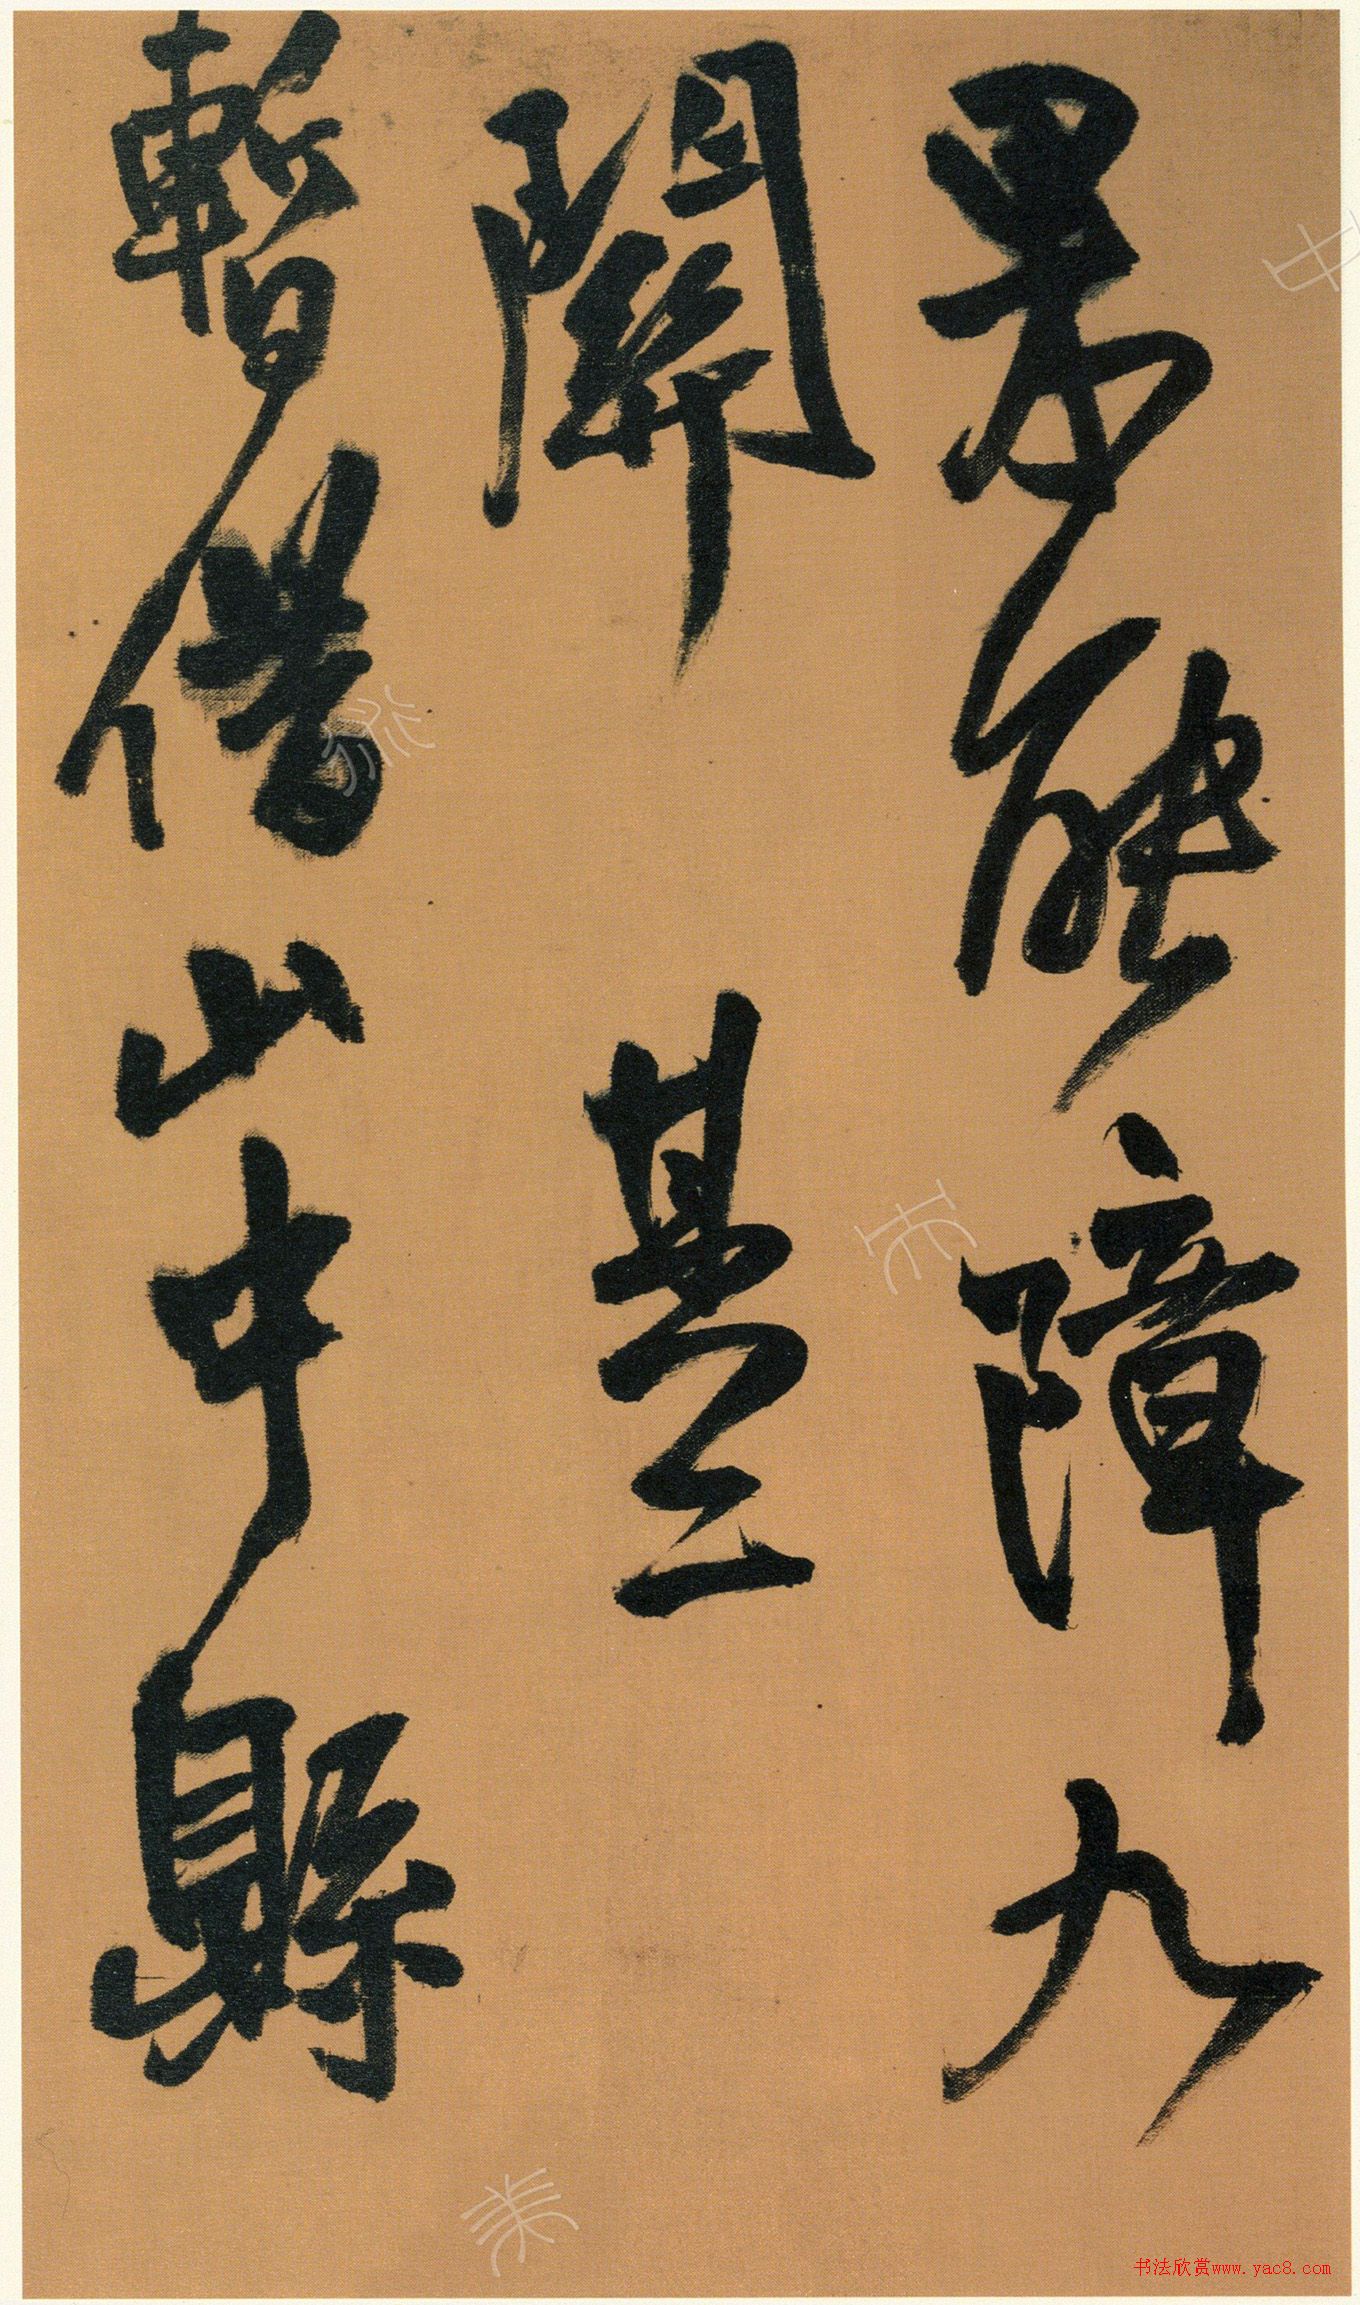 能障九
關基
暫借山中縣
书法欣赏www.yac8.com